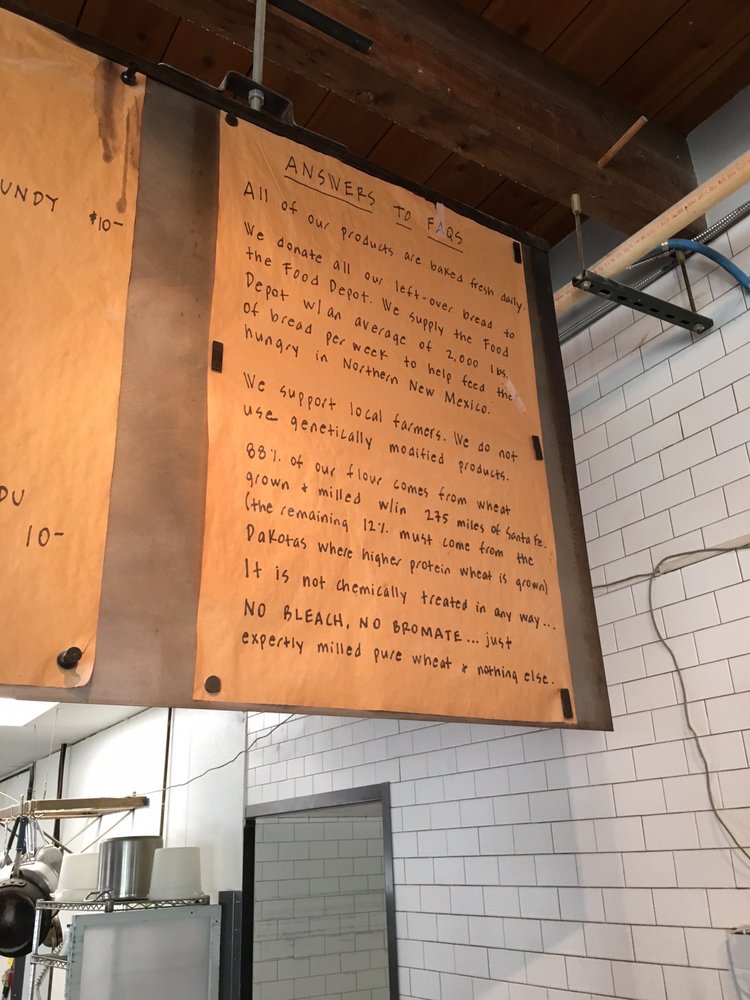 UNDY $10-
DU
10-
ANSWERS TO FAQS
All of our products are baked fresh daily.
We donate all our left-over bread to
the Food Depot. We supply the Food
Depot w/ an average of 2,000 lbs.
of bread per week to help feed the
hungry in Northern New Mexico.
We support local farmers. We do not
use genetically modified products.
88% of our flour comes from wheat
grown + milled w/in 275 miles of Santa Fe.
(the remaining 12% must come from the
Dakotas where higher protein wheat is grown)
It is not chemically treated in any way...
NO BLEACH, NO BROMATE... just
expertly milled pure wheat + nothing else.